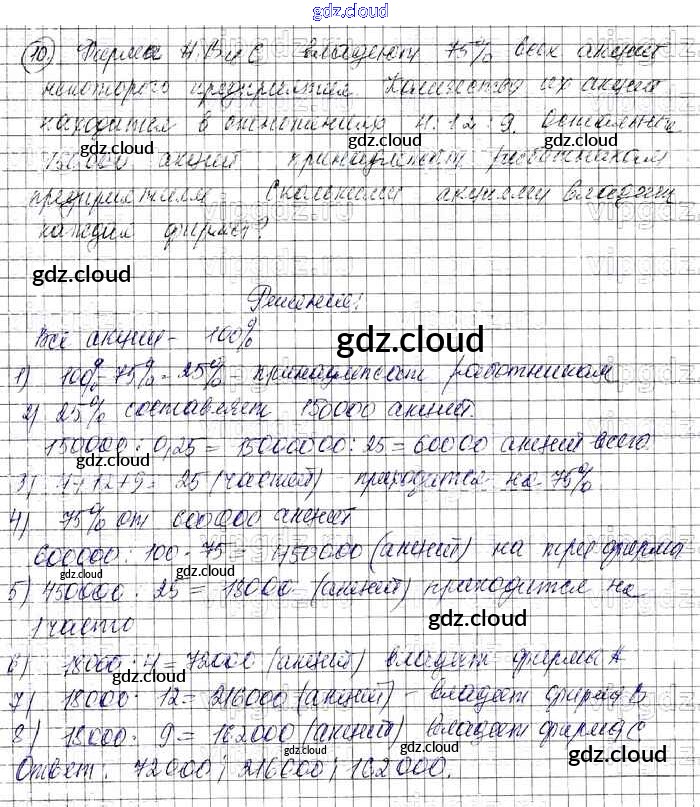 gdz.cloud
10) Фирмы А, В и С владеют 75% всех акций
некоторого предприятия. Количества их акций
находятся в отношении 4:12:9. Остальные
150000 акций принадлежат работникам
предприятием. Сколькими акциями владеет
каждая фирма?
gdz.cloud
Решение:
Все акции - 100%
gdz.cloud
1) 100% - 75% = 25% - принадлежат работникам
2) 25% составляет 150000 акций
150000 : 0,25 = 15000000 : 25 = 60000 акций всего
3) 4+12+9 = 25 (частей) - приходится на 75%
4) 75% от 600000 акций
600000 : 100 · 75 = 450000 (акций) на три фирмы
5) 450000 : 25 = 18000 (акций) приходится на
1 часть
gdz.cloud
6) 18000 · 4 = 72000 (акций) владеет фирмы А
7) 18000 · 12 = 216000 (акций) - владеет фирма В
8) 18000 · 9 = 162000 (акций) владеет фирма С
Ответ: 72000; 216000; 162000.
gdz.cloud